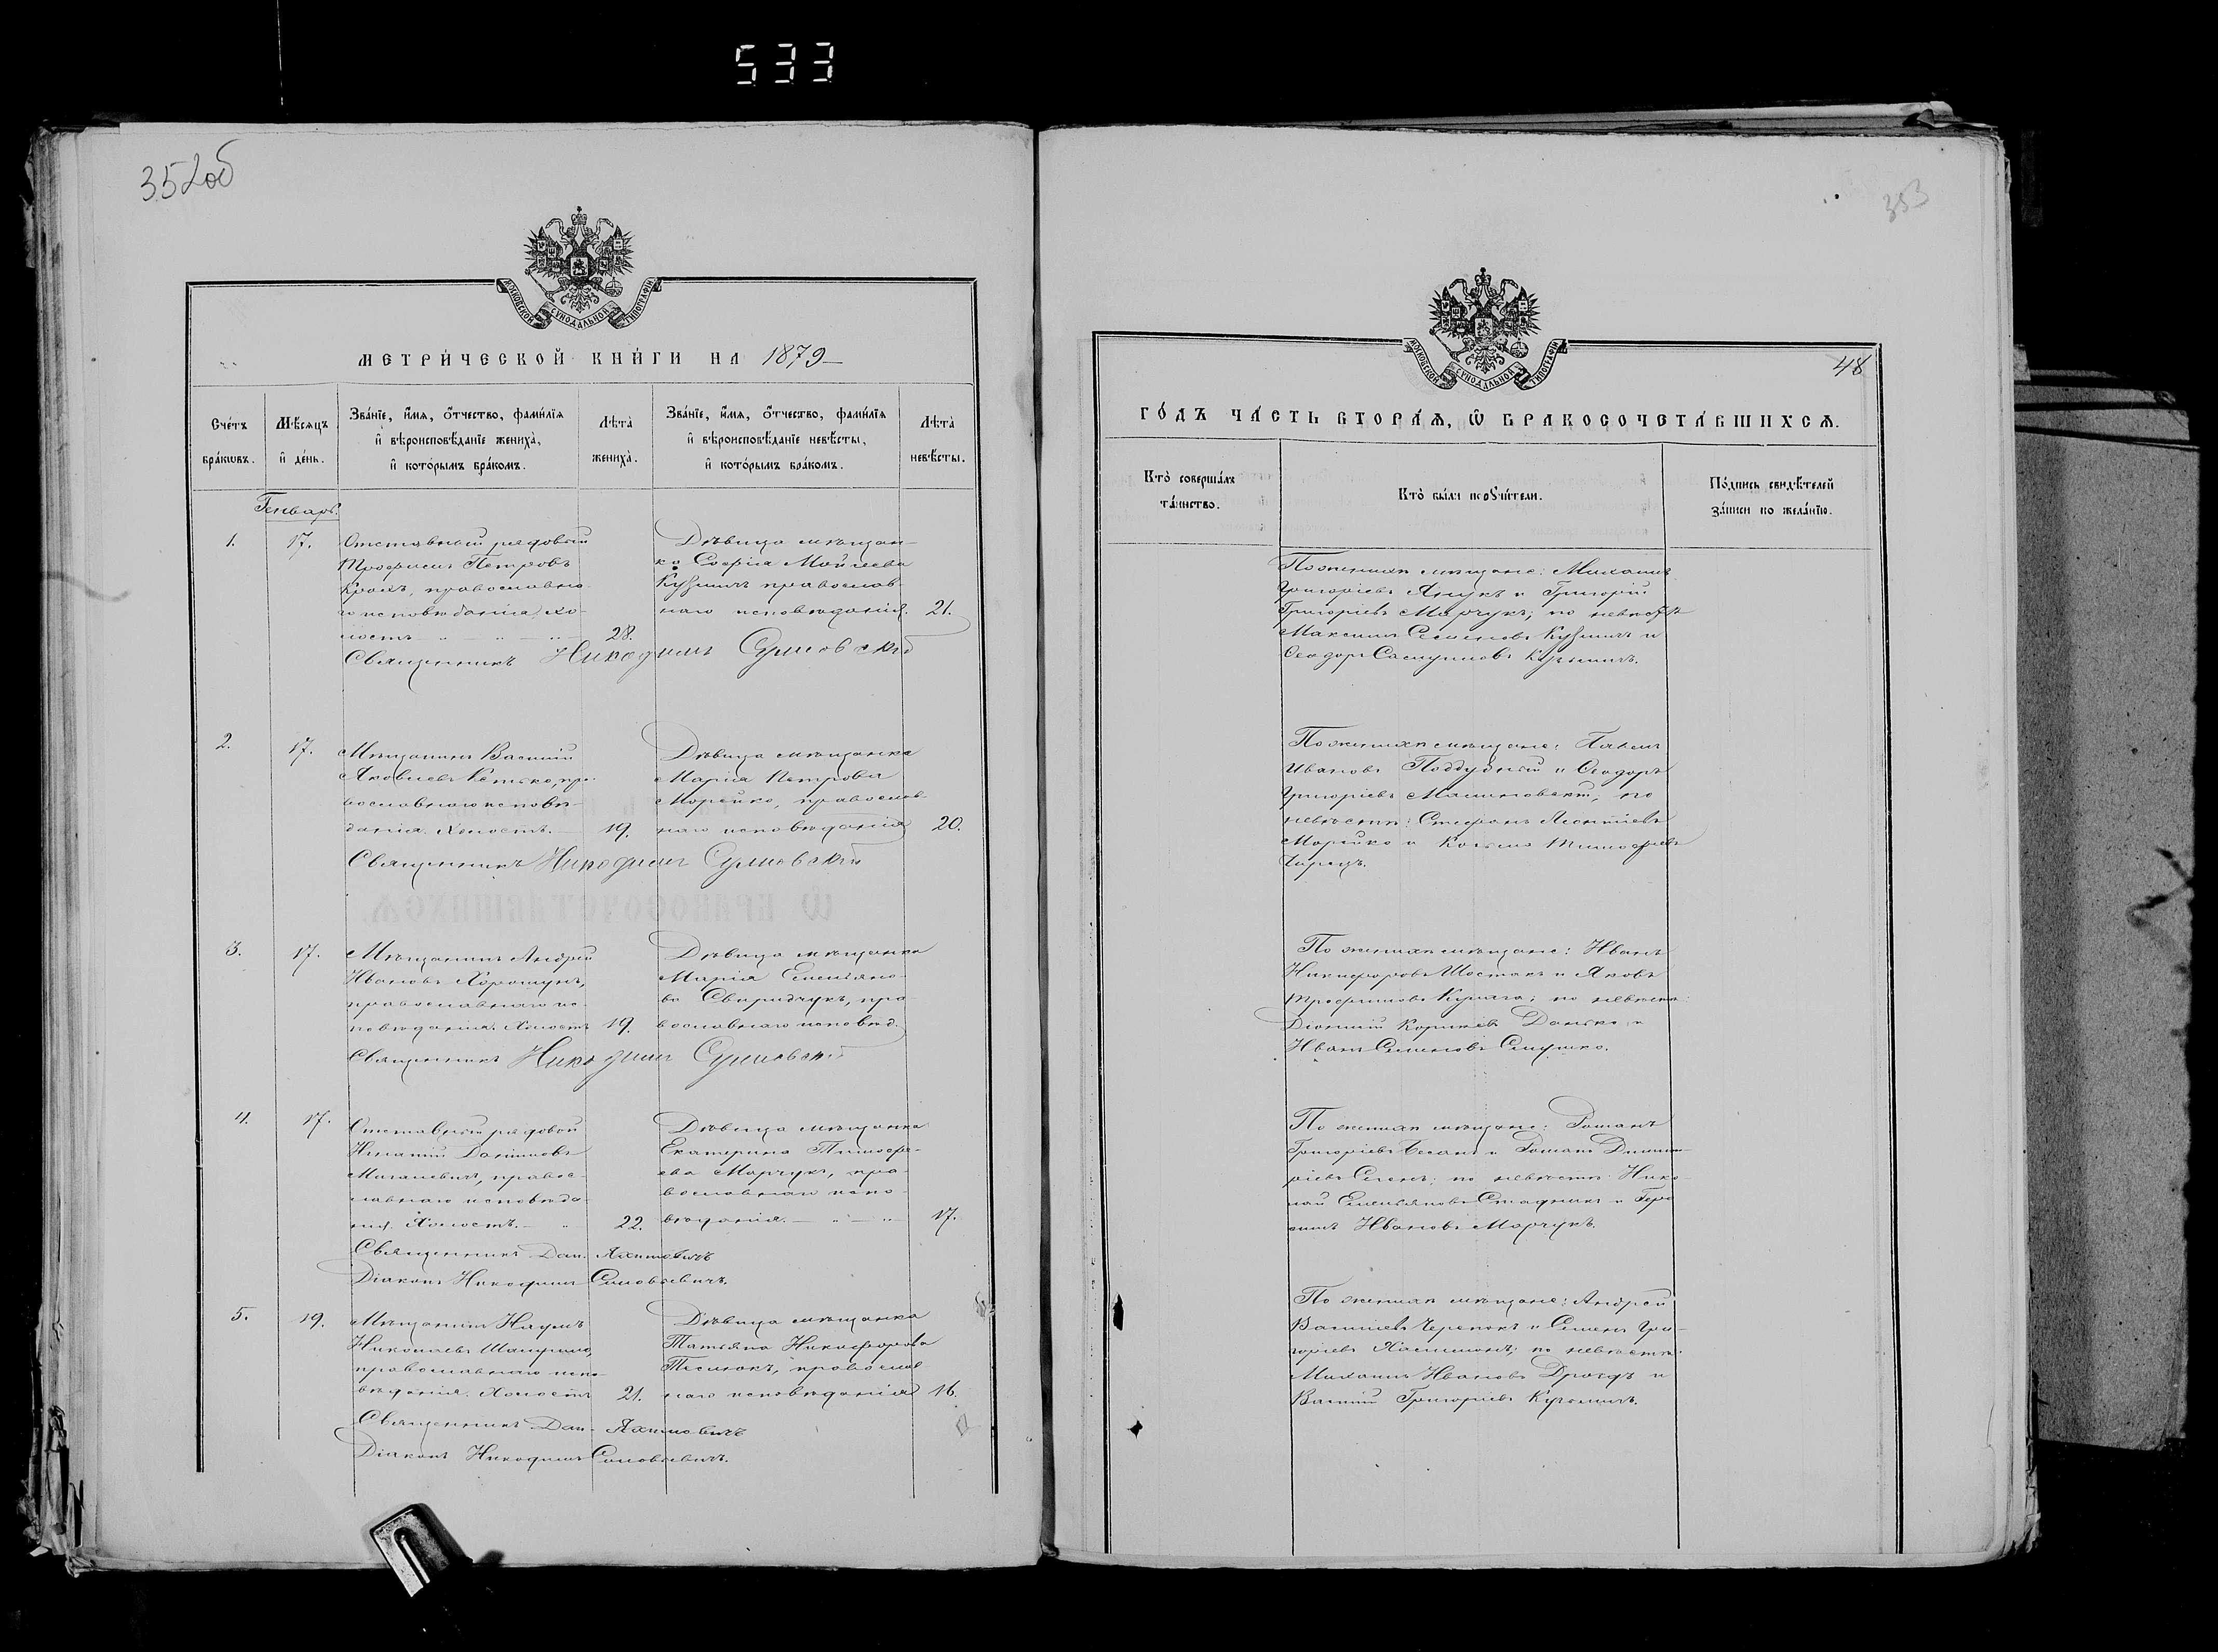 533
352об
МОСКОВСКОЙ СѴНОДАЛЬНОЙ ТИПОГРАФІИ
МЕТРИ́ЧЕСКОЙ КНИ́ГИ НА 1879
Сче́тъ бра́кѡвъ.
Мѣ́сяцъ и҆ де́нь.
Зва́нїе, и҆́мя, ѻ҆́тчество, фами́лїя
и҆ вѣроисповѣ́данїе жениха̀,
и҆ кото́рымъ бра́комъ.
Лѣта̀ жениха̀.
Зва́нїе, и҆́мя, ѻ҆́тчество, фами́лїя
и҆ вѣроисповѣ́данїе невѣ́сты,
и҆ кото́рымъ бра́комъ.
Лѣта̀ невѣ́сты.
Генварь.
1. 17.
Отставный рядовый
Трофимъ Петровъ
Кроль, православна-
го исповѣданія, хо-
лостъ 28.
Дѣвица мѣщан-
ка Софія Мойсеева
Кузмичъ православ-
наго исповѣданія. 21.
Священникъ Никодимъ
2. 17.
Мѣщанинъ Василій
Яковлевъ пра-
вославнаго исповѣ-
данія. Холостъ. 19.
Дѣвица мѣщанка
Марія Петрова
Морейко, православ-
наго исповѣданія 20.
Священникъ Никодимъ
3. 17.
Мѣщанинъ Андрей
Ивановъ Хорошунъ,
православнаго ис-
повѣданія. Холостъ 19.
Дѣвица мѣщанка
Марія Емельяно-
ва Свиридчукъ, пра-
вославнаго исповѣд.
Священникъ Никодимъ
4. 17.
Отставный рядовой
Игнатій Даниловъ
правос-
лавнаго исповѣда-
нія. Холостъ. 22.
Дѣвица мѣщанка
Екатерина Тимофе-
ева Марчукъ, пра-
вославнаго испо-
вѣданія. 17.
Священникъ Дан.
Діаконъ Никодимъ Соловьевичъ.
5. 19.
Мѣщанинъ Наумъ
Николаевъ
православнаго испо-
вѣданія. Холостъ 21.
Дѣвица мѣщанка
Татьяна Никифорова
Теслюкъ, православ-
наго исповѣданія 16.
Священникъ Дан.
Діаконъ Никодимъ Соловьевичъ.
353
МОСКОВСКОЙ СѴНОДАЛЬНОЙ ТИПОГРАФІИ
48
ГО́ДЪ ЧА́СТЬ ВТОРА́Я, Ѡ҆ БРАКОСОЧЕТА́ВШИХСЯ.
Кто̀ соверша́лъ та́инство.
Кто̀ бы́ли порꙋчи́тели.
По́дпись свидѣ́телей за́писи по жела́нїю.
По женихѣ мѣщане: Михаилъ
Григоріевъ Янукъ и Григорій
Григоріевъ Марчукъ; по невѣстѣ
Максимъ Семеновъ Кузмичъ и
Ѳеодоръ Кузьмичъ.
По женихѣ мѣщане: Павелъ
Ивановъ Поддубный и Ѳеодоръ
Григоріевъ Малиновскій; по
невѣстѣ: Стефанъ Леонтіевъ
Морейко и Косьма Тимофеевъ
По женихѣ мѣщане: Иванъ
Никифоровъ Шостакъ и Яковъ
Трофимовъ по невѣстѣ:
Діонисій Данько и
Иванъ Семеновъ
По женихѣ мѣщане: Романъ
Григоріевъ и Романъ Димит-
ріевъ по невѣстѣ: Нико-
лай Емельяновъ Стадникъ и Гера-
симъ Ивановъ Марчукъ.
По женихѣ мѣщане: Андрей
Василіевъ Черепокъ и Семенъ Гри-
горіевъ по невѣстѣ:
Михаилъ Ивановъ Дроздъ и
Василій Григоріевъ Кузьмичъ.